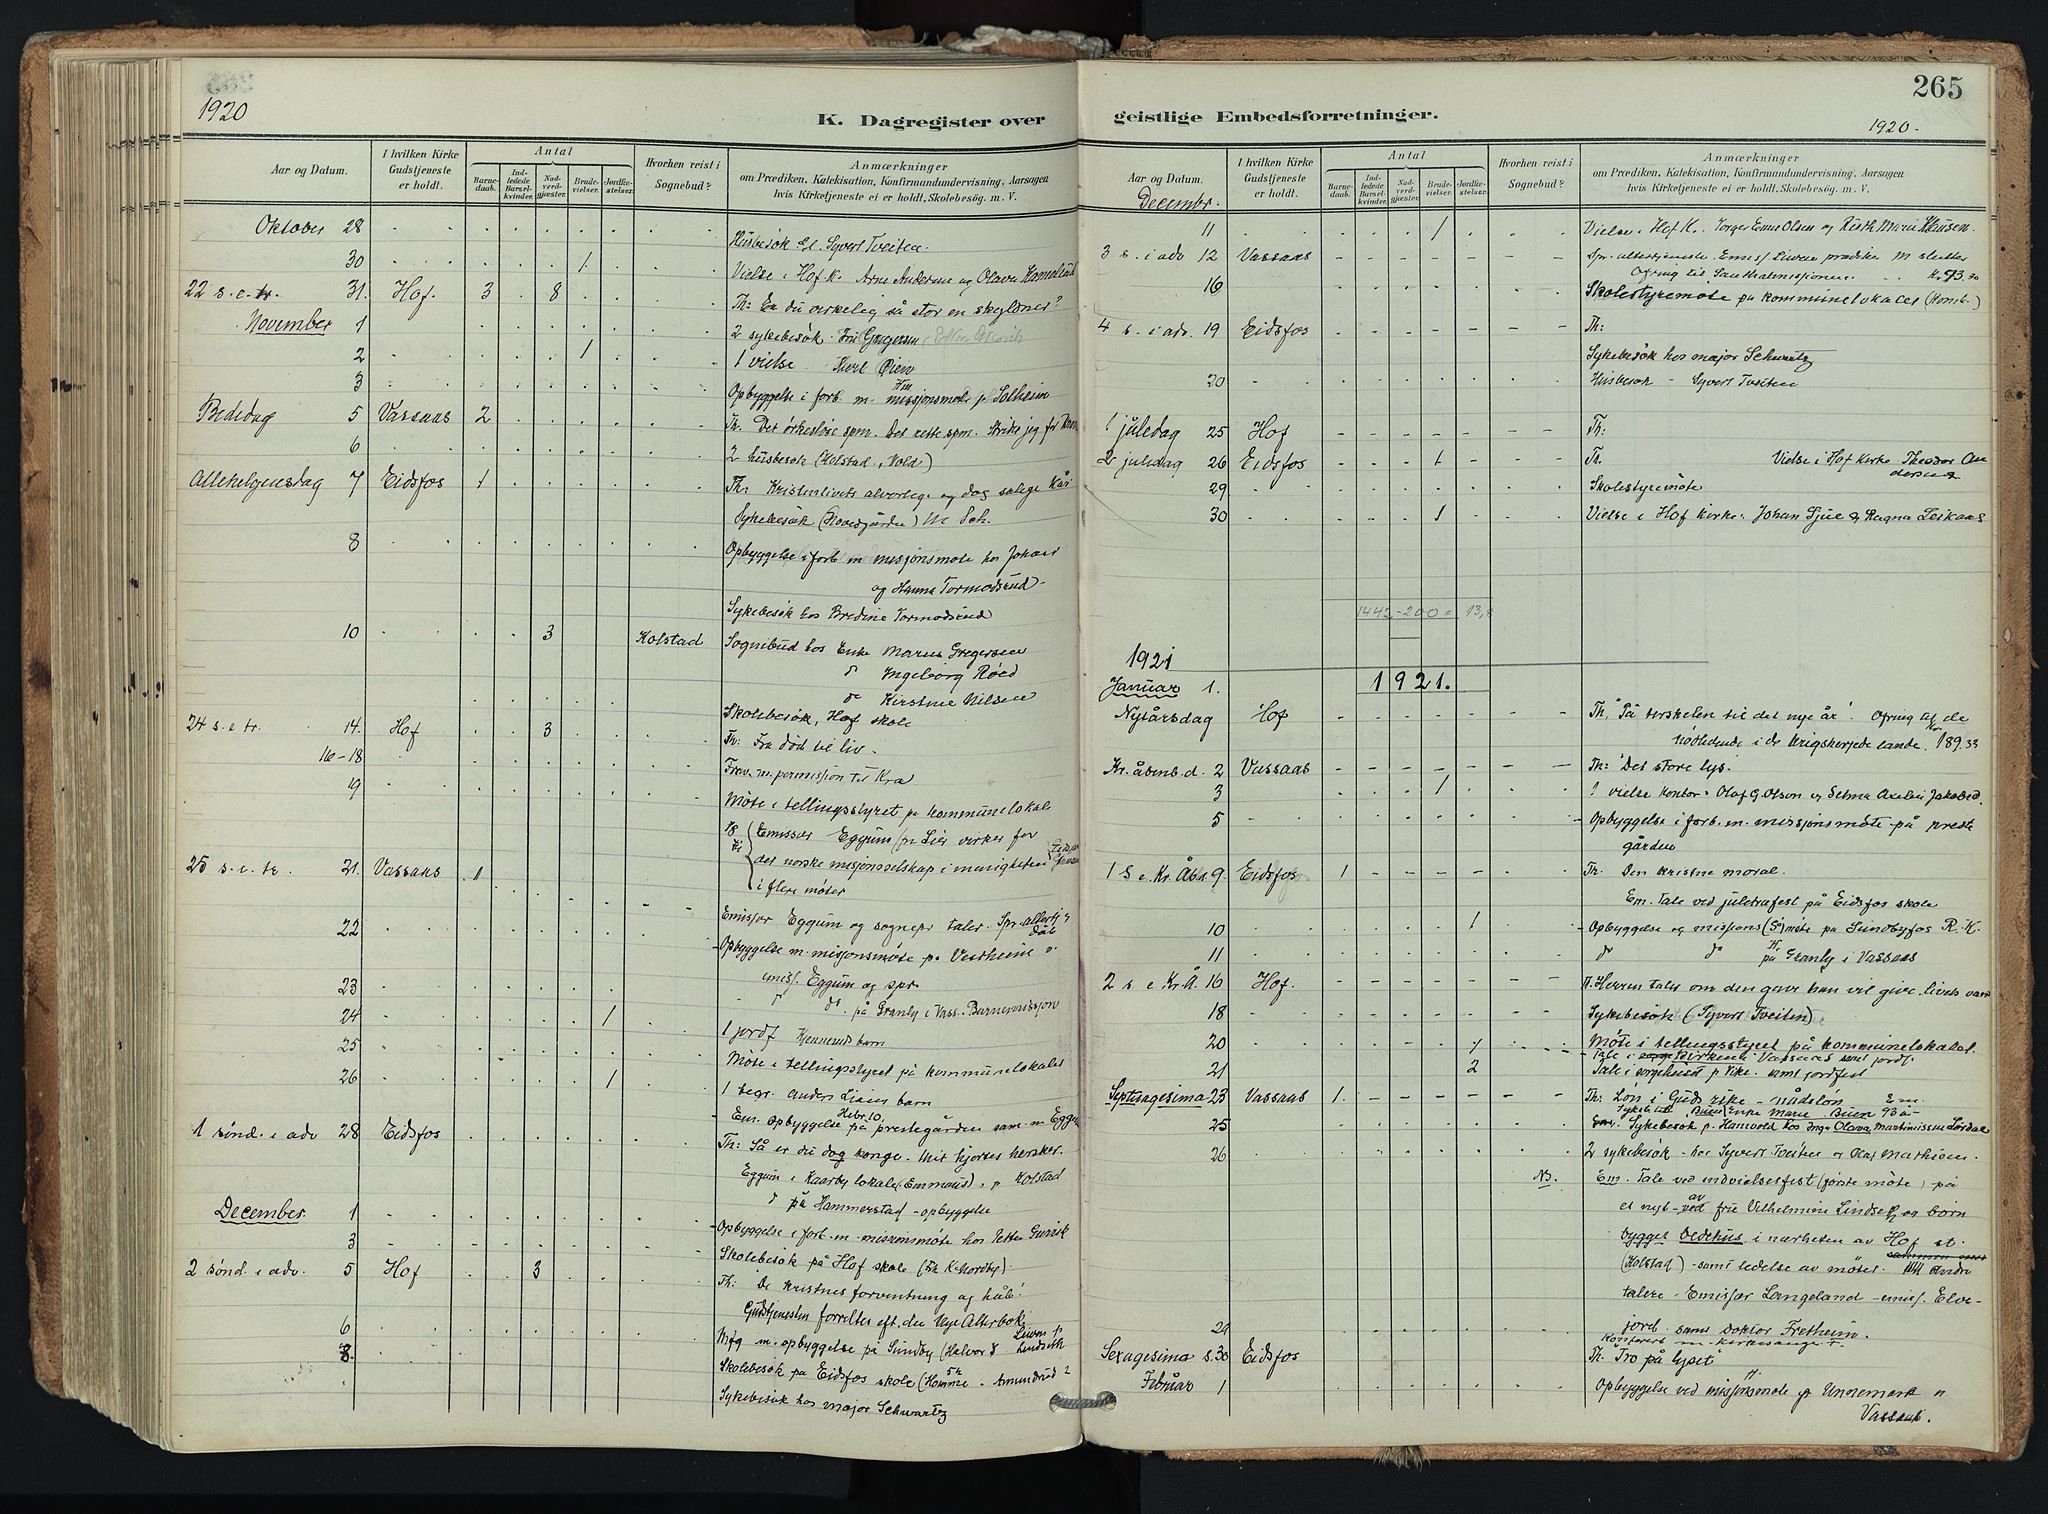 265
1920
K. Dagregister over
geistlige Embedsforretninger.
1920.
Aar og Datum.
I hvilken Kirke Gudstjeneste er holdt.
Antal
Barnedaab.
Indledede Barselkvinder.
Nadverdgjæster.
Brudevielser.
Jordfæstelser.
Hvorhen reist i Sognebud?
Anmærkninger
om Prædiken, Katekisation, Konfirmandundervisning, Aarsagen
hvis Kirketjeneste ei er holdt, Skolebesög. m. V.
Oktober 28 Husbesök hl. Syvert Tveiten.
30 1 Vielse i Hof K. Arne Andersen og Olava
22 s. e. tr. 31. Hof. 3 8 Th: Er du virkelig så stor en skyldner?
November 1 2 sykebesök. Gregersen
2 1 1 vielse Karl Öien
3 Opbyggelse i forb. m. missjonsmöte p. Solheim
Bededag 5 Vassaas 2 Th. Det örkeslöse spm. Det rette spm.
6 2 husbesök (Kolstad, Vold)
Allehelgensdag 7 Eidsfos 1 Th: Kristenlivets alvorlige og dog salige kår
Sykebesök (Hovedgården) M Sch.
8 Opbyggelse i forb m misjonsmöte hos Johan
og Hanna Tormodsrud
Sykebesök hos Bredine Tormodsrud
10 3 Kolstad Sognebud hos Enke Maren Gregersen
do Ingeborg Röed
do Kirstine Nilsen
Skolebesök, Hof skole
24 s. e tr. 14. Hof 3 Th: Fra död til liv.
16-18 Frav. m. permisjon til Kra
19 Möte i tellingsstyret på kommunelokale
18/21 Emissær Eggum fra Lier virker for
det norske misjonsselskap i menigheten
i flere möter
25 s. e. tr. 21. Vassaas 1
Emissær Eggum og sognepr taler. Spr. altertj.
22 Opbyggelse m. misjonsmöte på Vestheim v.
emiss. Eggum og spr.
23 do på Granly i Vass. Barnemission
24 1 1 jordf barn
25 Möte i tellingsstyret på kommunelokalet
26 1 1 begr. Anders Liens barn
Em. opbyggelse på prestegården sam. m Eggum
Hebr. 10.
1 sönd. i adv 28 Eidsfos Th: Så er du dog konge. Mit hjertes hersker.
Eggum i Kaarby lokale (Emmaus), p Kolstad
do på Hammerstad - opbyggelse
December. 1 Opbyggelse i forb. m. misionsmöte hos Petter
3 Skolebesök på Hof skole (Frk K. Nordby).
2 sönd. i adv. 5 Hof 3 Th: De kristnes forventning og håb!
Gudstjenesten forrettes eft. den nye Alterbok
6 Mfg m. opbyggelse på Sundby (Halvor
8. Skolebesök på Eidsfos skole (Homme - Amundrud
Sykebesök hos major Schwartz
Aar og Datum.
I hvilken Kirke Gudstjeneste er holdt.
Antal
Barnedaab.
Indledede Barselkvinder.
Nadverdgjæster.
Brudevielser.
Jordfæstelser.
Hvorhen reist i Sognebud?
Anmærkninger
om Prædiken, Katekisation, Konfirmandundervisning, Aarsagen
hvis Kirketjeneste ei er holdt, Skolebesög. m. V.
Decembr.
11 1 Vielse i Hof K. Torger Olsen og Ruth Marie Hansen.
3 s. i adv 12 Vassaas Spr. altertjeneste. Emiss prædiker
Ofring til Santhalmissionen. Kr 93.30
16 Skolestyremöte på kommunelokalet
4 s. i adv. 19 Eidsfos Th:
Sykebesök hos major Schwartz
20 Husbesök - Syvert Tveiten
1 juledag 25 Hof Th:
2 juledag 26 Eidsfos 1 Th. Vielse i Hof kirke Theodor Andersen
29 Skolestyremöte
30 1 Vielse i Hof kirke: Johan Sjue & Ragna
1442-200 = 13,8
1921
1921.
Januar 1.
Nytårsdag Hof Th. "På terskelen til det nye år". Ofring til de
nödlidende i de krigsherjede lande. Kr. 189.33
Kr. åbenb. d. 2 Vassaas Th: Det store lys.
3 1 1 vielse kontor: Olaf G. Olson og Selma
5 Opbyggelse i forb. m. missjonsmöte på prestegården
1 S e. Kr. Åb. 9 Eidsfos 1 Th. Den kristne moral.
Em. Tale ved juletræfest på Eidsfos skole
10 1 Opbyggelse og misjonsmöte på Sundbyfos R. K.
11 do do på Granly i Vassaas
2 s e Kr. Å. 16 Hof. Th. Herren taler om den gave han vil give. livets vand
18 Sykebesök (Syvert Tveiten)
20 1 Möte i tellingsstyret på kommunelokalet.
Tale i kirken i Vassaas samt jordf.
21 2 Tale i sorgehuset p. Vike. samt jordfest
Septuagesima 23 Vassaas 1. Th: Lön i Guds rike - nådelön Em.
Sykebesök Buen Enke Marie Buen 93 år
25 Sykebesök p. Hanvold hos Inga Olava Martinissen
26 2 sykebesök - hos Syvert Tveiten og Olaf Mathisen.
NB. Em. Tale ved indvielsesfest (förste möte) på
et nyt av frue Vilhelmine Lindseth og börn
bygget bedehus i nærheten av Hof st.
(Kolstad) - samt ledelse av möter. Andre
talere - Emissær Langeland - emiss. Elvejord
samt Doktor Fretheim.
29 Konferert m. kirkesanger T.
Sexagesima s. 30 Eidsfos Th. Tro på lyset
Februar 1 Opbyggelse ved misjonsmöte på Unnemark i
Vassaas.